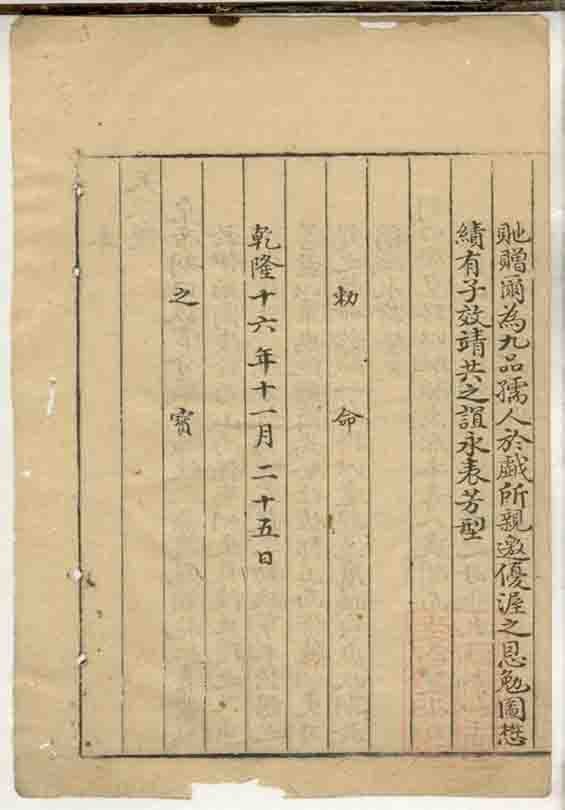 貤贈爾為九品孺人於戲所親邀優渥之恩勉圖懋
績有子效靖共之誼永表芳型
勅命
乾隆十六年十一月二十五日
之寶